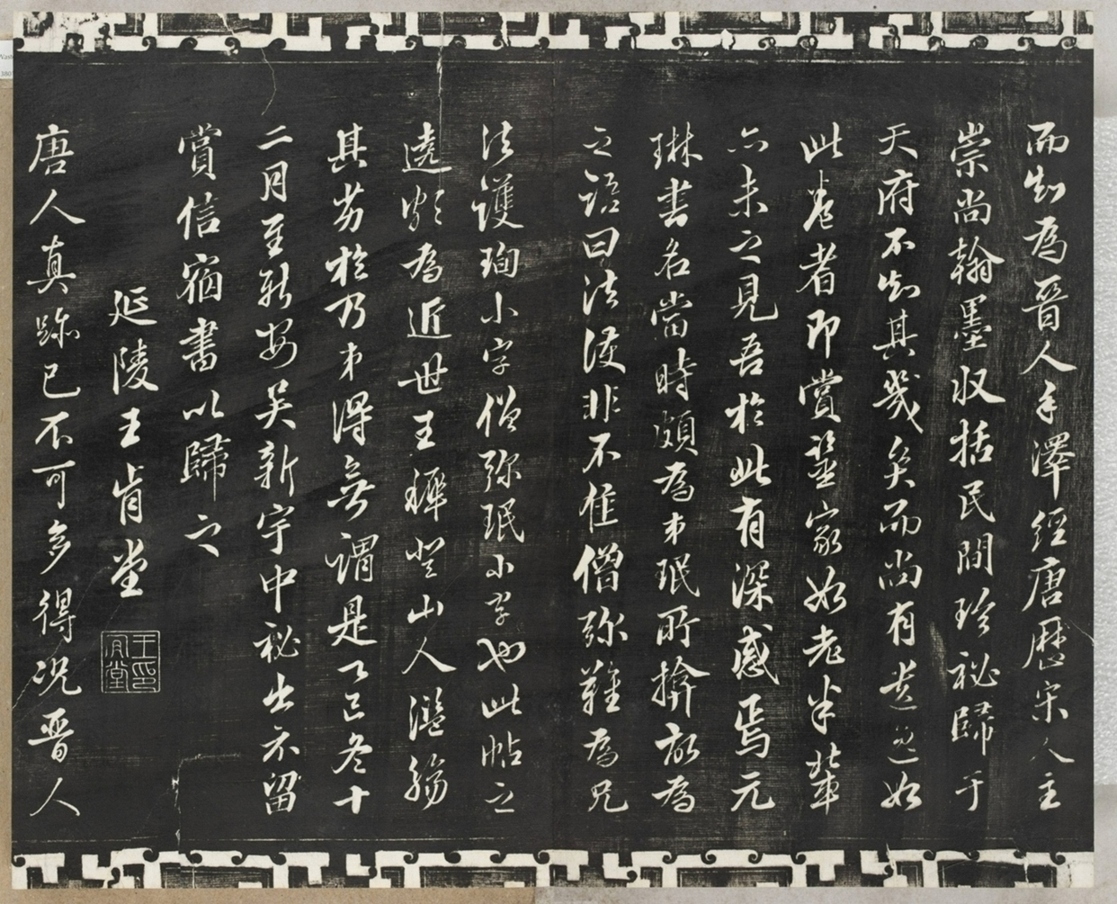 而知為晉人手澤經唐歷宋人主
崇尚翰墨收括民間珍秘歸于
天府不知其幾矣而尚有遺逸如
此卷者即賞鑒家如老米輩
亦未之見吾於此有深感焉元
琳書名當時頗為弟珉所擠故為
之語曰法護非不佳僧彌難為兄
法護珣小字僧彌珉小字也此帖之
遠歟為近世王穉登山人濫觴
其劣於乃弟得無謂是乙巳冬十
二月至新安吳新宇中秘出示留
賞信宿書以歸之
延陵王肯堂
王肯堂印
唐人真跡已不可多得況晉人